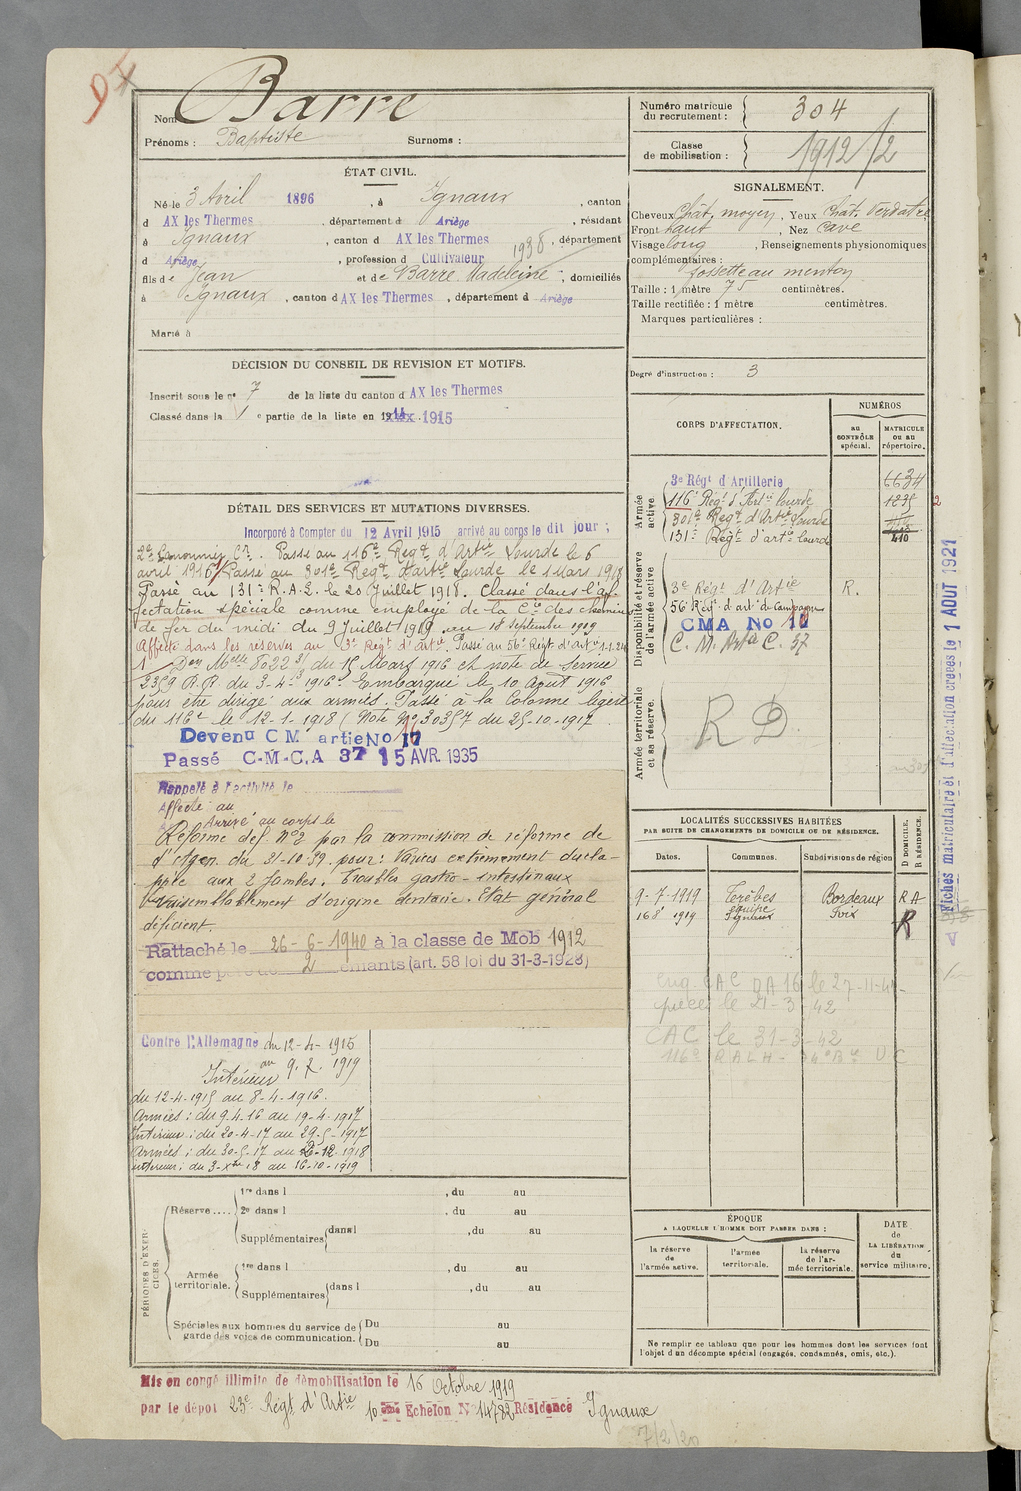 Nom Barre
Prénoms : Baptiste Surnoms :
ÉTAT CIVIL.
Né le 3 Avril 1896, à Ignaux, canton
d AX les Thermes, département d Ariège, résidant
à Ignaux, canton d AX les Thermes 1938, département
d Ariège, profession d Cultivateur
fils de Jean et de Barre Madeleine, domiciliés
à Ignaux, canton d AX les Thermes, département d Ariège
Marié à
DÉCISION DU CONSEIL DE REVISION ET MOTIFS.
Inscrit sous le n° 7 de la liste du canton d AX les Thermes
Classé dans la 1 e partie de la liste en 1915
DÉTAIL DES SERVICES ET MUTATIONS DIVERSES.
Incorporé à Compter du 12 Avril 1915 arrivé au corps le dit jour ;
2e Canonnier Cr. Passé au 116e Regt d'Artie Lourde le 6
avril 1916. Passé au 301e Regt d'artie Lourde le 1 Mars 1918
Passé au 131e R.A.L. le 20 Juillet 1918. Classé dans l'af-
fectation spéciale comme employé de la Cie des chemins
de fer du midi du 9 Juillet 1919 au 18 septembre 1919
Affecté dans les réserves au 3e Régt d'artie. Passé au 56e Régt d'artie 1-1-24
1 Don Melle 5022 3/ du 15 Mars 1916 et note de service
2359 R.R. du 3-4- 1916. Embarqué le 10 Août 1916
pour être dirigé aux armées. Passé à la Colonne légère
du 116e le 12-1-1918 (Note No 30357 du 25-10-1917
Devenu C M artie No 17
Passé C-M-C.A 37 15 AVR. 1935
Rappelé à l'activité le
Affecté : au
Arrivé au corps le
Réformé déf. N°2 par la commission de réforme de
d'Agen du 31-10-39. pour : Varices extrêmement dévelo-
ppée aux 2 jambes. Troubles gastro-intestinaux
Vraisemblablement d'origine dentaire. Etat général
déficient.
Rattaché le 26-6-1940 à la classe de Mob 1912
comme père de 2 enfants (art. 58 loi du 31-3-1928)
Contre l'Allemagne du 12-4-1915
au 9.7.1919
Intérieur
du 12-4-1915 au 8-4-1916.
Armées : du 9.4.16 au 19-4-1917
Intérieur : du 20-4-17 au 29-5-1917
Armées : du 30-5-17 au 2-12-1918
Intérieur : du 3-Xbre 18 au 16-10-1919
PÉRIODES D'EXERCICES.
Réserve.... 1re dans l , du au
2e dans l , du au
Supplémentaires dans l , du au
Armée territoriale. 1re dans l , du au
Supplémentaires dans l , du au
Spéciales aux hommes du service de garde des voies de communication. Du au
Du au
Mis en congé illimité de démobilisation le 16 Octobre 1919
par le dépot 23e Régt d'Artie 10 ème Echelon N° 14782 Résidence Ignaux
7/2/20
Numéro matricule du recrutement : 304
Classe de mobilisation : 1912/2
SIGNALEMENT.
Cheveux Chât. moyen, Yeux Chât. Verdâtre
Front haut, Nez cave
Visage long, Renseignements physionomiques
complémentaires :
fossette au menton
Taille : 1 mètre 75 centimètres.
Taille rectifiée : 1 mètre centimètres.
Marques particulières :
Degré d'instruction : 3
CORPS D'AFFECTATION.
NUMÉROS
au CONTRÔLE spécial.
MATRICULE ou au répertoire.
Armée active
3e Régt d'Artillerie 6634
116e Régt d'Artie Lourde 1235 2
301e Régt d'Artie Lourde
131e Régt d'artie Lourde 410
Disponibilité et réserve de l'armée active
3e Régt d'Artie R.
56e Régt d'art de Campagne
CMA No 17
C. M. Art C. 37
Armée territoriale et sa réserve.
R D
LOCALITÉS SUCCESSIVES HABITÉES
PAR SUITE DE CHANGEMENTS DE DOMICILE OU DE RÉSIDENCE.
D DOMICILE.
R RÉSIDENCE.
Dates. Communes. Subdivisions de région
9-7-1919 Trèbes Bordeaux R A
équipe
16 8 1919 Ignaux Foix R
le 27-11-41
le 21-3-42
CAC le 31-3-42
116e RALH
ÉPOQUE
A LAQUELLE L'HOMME DOIT PASSER DANS :
la réserve de l'armée active.
l'armée territoriale.
la réserve de l'armée territoriale.
DATE de LA LIBÉRATION du service militaire.
Ne remplir ce tableau que pour les hommes dont les services font
l'objet d'un décompte spécial (engagés, condamnés, omis, etc.).
Fiches matriculaire et d'affectation créées le 1 AOUT 1921